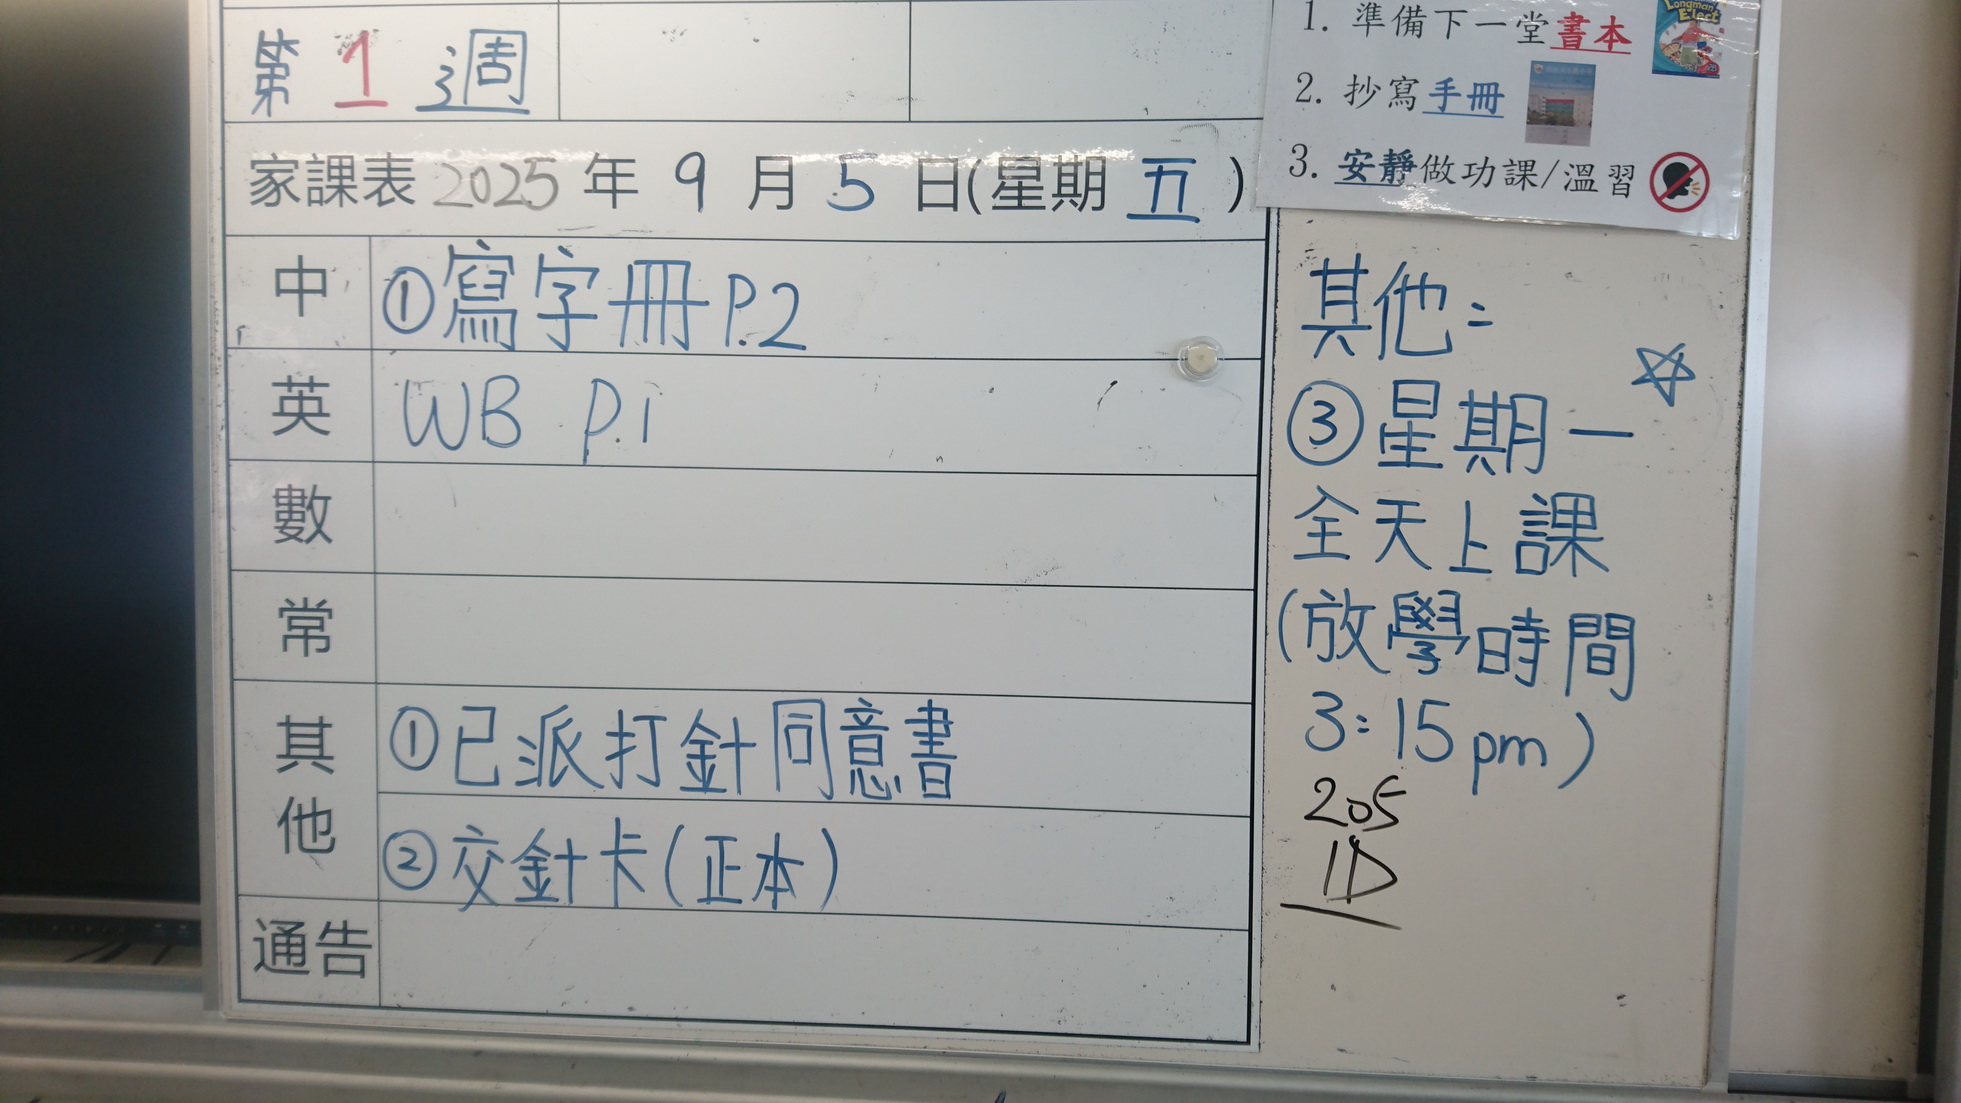 第 1 週
家課表 2025 年 9 月 5 日(星期 五 )
中 ①寫字冊 P.2
英 WB P.1
數
常
其他 ①已派打針同意書
②交針卡(正本)
通告
1. 準備下一堂書本
Longman Elect
2. 抄寫手冊
3. 安靜做功課/溫習
其他:
③星期一
全天上課
(放學時間
3:15pm)
205
1D